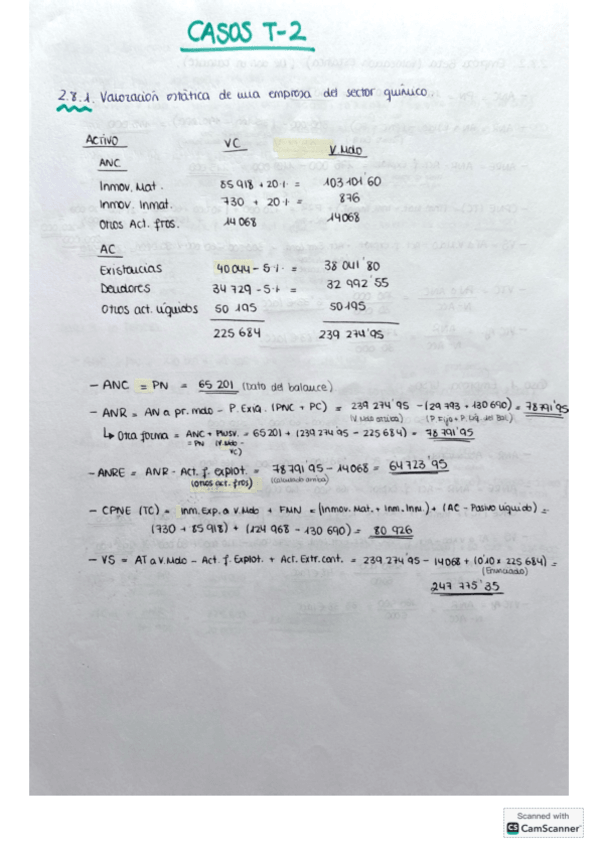 CASOS T-2
2.8.1. Valoración estática de una empresa del sector químico.
ACTIVO VC V.Mdo
ANC
Inmov. Mat. 85918 + 20% = 103101'60
Inmov. Inmat. 730 + 20% = 876
Otros Act. fros. 14068 14068
AC
Existencias 40044 - 5% = 38041'80
Deudores 34729 - 5% = 32992'55
Otros act. líquidos 50195 50195
225684 239274'95
- ANC = PN = 65201 (Dato del balance)
- ANR = AN a pr. mdo - P. Exig. (PNC + PC) = 239274'95 - (29793 + 130690) = 78791'95
(P. Fijo + P. Líq. del Bal.)
↳ Otra forma = ANC + Plusv. = 65201 + (239274'95 - 225684) = 78791'95
= PN (V.Mdo - VC)
- ANRE = ANR - Act. f. explot. = 78791'95 - 14068 = 64723'95
(otros act. fros) (calculado arriba)
- CPNE (TC) = Inm. Exp. a V. Mdo + FMN = (Inmov. Mat. + Inm. Inm.) + (AC - Pasivo líquido) =
(730 + 85918) + (124968 - 130690) = 80926
- VS = AT a V. Mdo - Act. f. Explot. + Act. Extr. cont. = 239274'95 - 14068 + (0'10 x 225684) =
(Enunciado)
247775'35
Scanned with
CS CamScanner